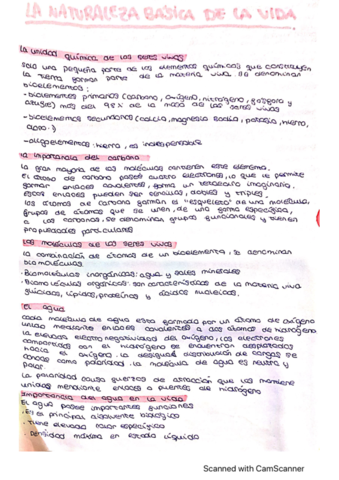 LA NATURALEZA BÁSICA DE LA VIDA
La unidad química de los seres vivos
Solo una pequeña parte de los elementos químicos que constituyen
la tierra forman parte de la materia viva. Se denominan
bioelementos:
- bioelementos primarios (carbono, oxígeno, nitrógeno, fósforo y
azufre) más del 98% de la masa de los seres vivos
- bioelementos secundarios (calcio, magnesio, sodio, potasio, hierro,
- oligoelementos: hierro, es indispensable
la importancia del carbono
la gran mayoría de las moléculas contienen este elemento.
El átomo de carbono posee cuatro electrones, lo que le permite
formar enlaces covalentes, forma un tetraedro imaginario.
Estos enlaces pueden ser sencillos, dobles y triples.
los átomos de carbono forman el "esqueleto" de una molécula,
grupos de átomos que se unen, de una forma específica,
a los carbonos, se denominan grupos funcionales y tienen
propiedades particulares.
Las moléculas de los seres vivos
la combinación de átomos de un bioelemento, le denominan
biomoléculas.
- Biomoléculas inorgánicas: agua y sales minerales
- Biomoléculas orgánicas: son características de la materia viva
glúcidos, lípidos, proteínas y ácidos nucleicos.
El agua
cada molécula de agua esta formada por un átomo de oxígeno
unido mediante enlaces covalentes a dos átomos de hidrógeno
la elevada electronegatividad del oxígeno, los electrones
compartidos con el hidrógeno se encuentran desplazados
hacia el oxígeno. la desigual distribución de cargas se
conoce como polaridad. la molécula de agua es neutra y
polar.
La polaridad causa fuerzas de atracción que las mantiene
unidas mediante enlaces o puentes de hidrógeno
Importancia del agua en la vida
El agua posee importantes funciones
- Es el principal disolvente biológico
- Tiene elevado calor específico
- Densidad máxima en estado líquido
Scanned with CamScanner